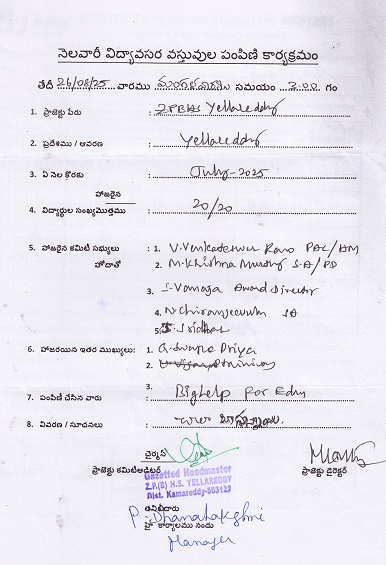 నెలవారీ విద్యావసర వస్తువుల పంపిణి కార్యక్రమం
తేదీ 26/08/25 వారము మంగళవారం సమయం 3.00 గం
1. ప్రాజెక్టు పేరు : ZPBHS Yellareddy
2. ప్రదేశము / ఆవరణ : Yellareddy
3. ఏ నెల కొరకు : July-2025
హాజరైన
4. విద్యార్థుల సంఖ్యమొత్తము : 20/20
5. హాజరైన కమిటి సభ్యులు : 1. V.Venkateswer Rao PAC/HM
హోదాతో 2. M.Krishna Murthy S.A/PD
3. S-Vanaja Award Director
4. N Chiranjeevulu SA
5. Sridhar
6. హాజరయిన ఇతర ముఖ్యులు: 1. G.Swapna Priya
2.
3.
7. పంపిణి చేసిన వారు : BigHelp For Edn
8. వివరణ / సూచనలు : చాలా బాగున్నాయి.
చైర్మన్
ప్రాజెక్టు కమిటిఆడిటర్ ప్రాజెక్టు డైరెక్టర్
Gazetted Headmaster
Z.P.(B) H.S. YELLAREDDY
Dist. Kamareddy-503122
తనిఖీదారు
P. Dhanalakshmi
హై కార్యాలము నందు
Manager